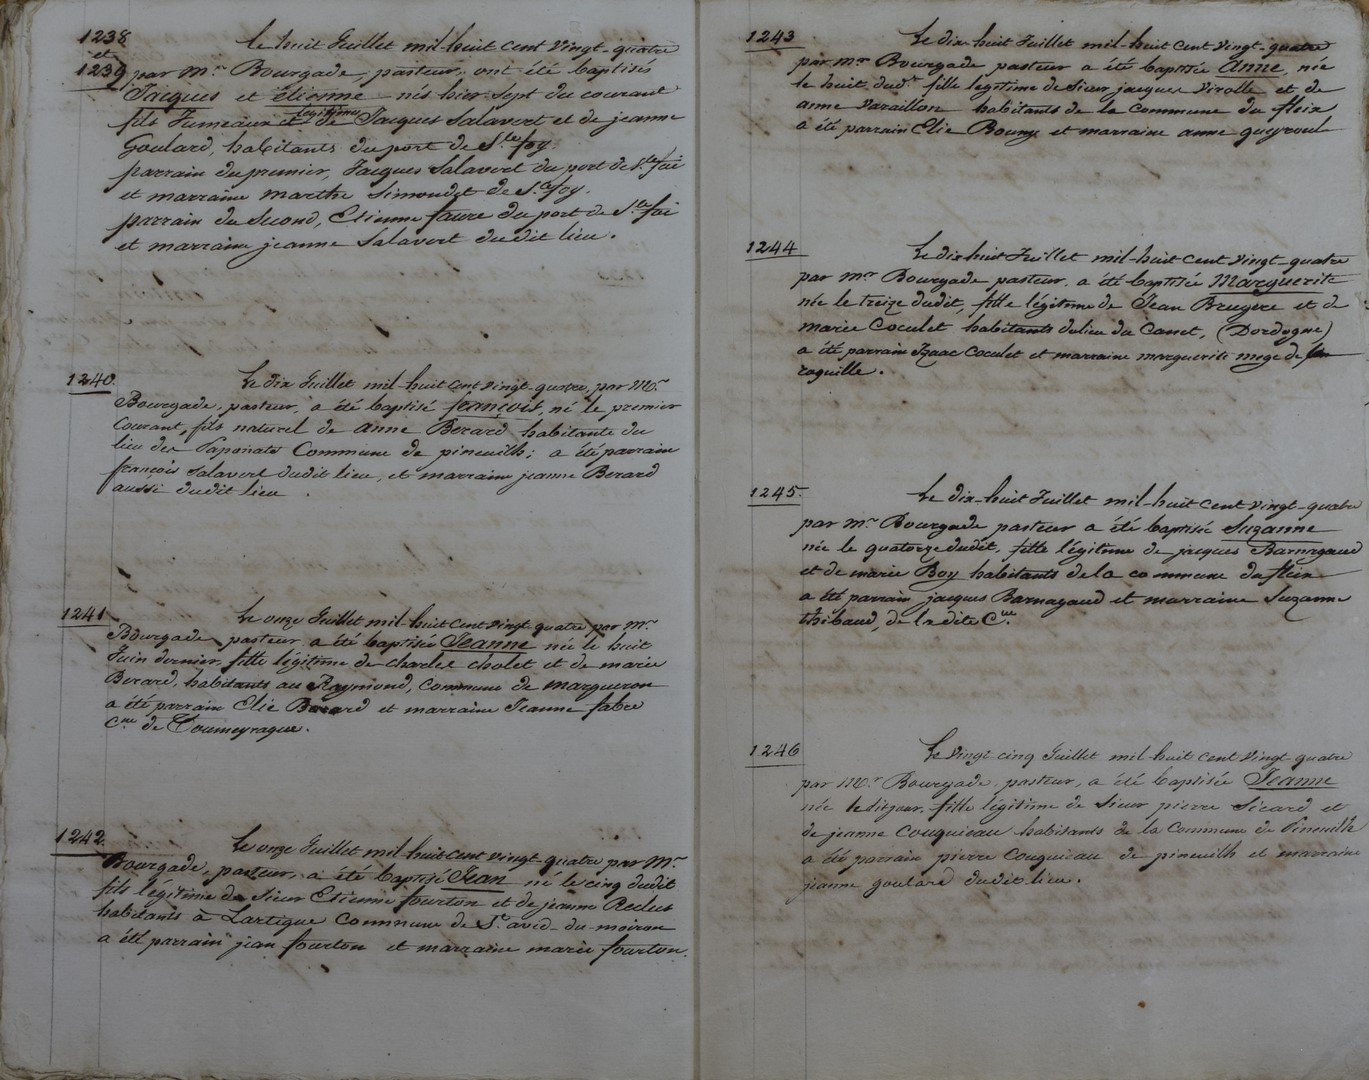 1238
et
1239
Le huit Juillet mil-huit cent vingt-quatre
par Mr. Bourgade, pasteur, ont été baptisés
Jacques et étienne nés hier sept du courant
fils Jumeaux et légitimes de Jacques Salavert et de jeanne
Goulard, habitants du port de Ste foy.
parrain du premier, Jacques Salavert du port de Ste foi
et marraine marthe Simondet de Ste foy.
parrain du Second, Etienne faure du port de Ste foi
et marraine jeanne Salavert dudit lieu.
1240.
Le dix Juillet mil-huit cent vingt-quatre, par Mr.
Bourgade, pasteur, a été baptisé françois, né le premier
Courant, fils naturel de anne Berard habitante du
lieu des Paponats Commune de pineuilh; a été parrain
françois Salavert dudit lieu, et marraine jeanne Berard
aussi dudit lieu.
1241
Le onze Juillet mil-huit cent vingt quatre par Mr.
Bourgade, pasteur, a été baptisée Jeanne née le huit
Juin dernier, fille légitime de charles cholet et de marie
Berard, habitants au Raymond, Commune de margueron
a été parrain Elie Berard et marraine Jeanne fabre
Cne de Toumeyragues.
1242.
Le onze Juillet mil-huit cent vingt-quatre par Mr.
Bourgade, pasteur, a été baptisé Jean né le cinq dudit
fils légitime de Sieur Etienne fourton et de jeanne Reclus
habitants à Lartigue Commune de St. avid-du-moiron
a été parrain jean fourton et marraine marie fourton.
1243
Le dix-huit Juillet mil-huit cent vingt-quatre
par mr. Bourgade pasteur a été baptisée Anne, née
le huit dudt fille legitime de Sieur jacques Virolle et de
anne Varaillon habitants de la Commune du fleix
a été parrain Elie Bouny et marraine anne queyroul
1244
Le dix huit Juillet mil-huit cent vingt-quatre
par mr. Bourgade pasteur, a été baptisée Marguerite
née le treize dudit, fille légitime de Jean Brugere et de
marie Coculet habitants du lieu du Canet, (Dordogne)
a été parrain Izaac Coculet et marraine marguerite mege de
roquille.
1245.
Le dix-huit Juillet mil-huit cent vingt-quatre
par mr. Bourgade pasteur a été baptisée Suzanne
née le quatorze dudit, fille légitime de jacques Barnagaud
et de marie Boy habitants de la commune du fleix
a été parrain jacques Barnagaud et marraine Suzanne
thibaud, de la dite Cne.
1246
Le vingt-cinq Juillet mil-huit cent vingt-quatre
par Mr. Bourgade pasteur, a été baptisée Jeanne
née le dit jour, fille légitime de Sieur pierre Sicard et
de jeanne Couquieau habitants de la Commune de Pineuilh
a été parrain pierre Couquieau de pineuilh et marraine
jeanne goulard dudit lieu.